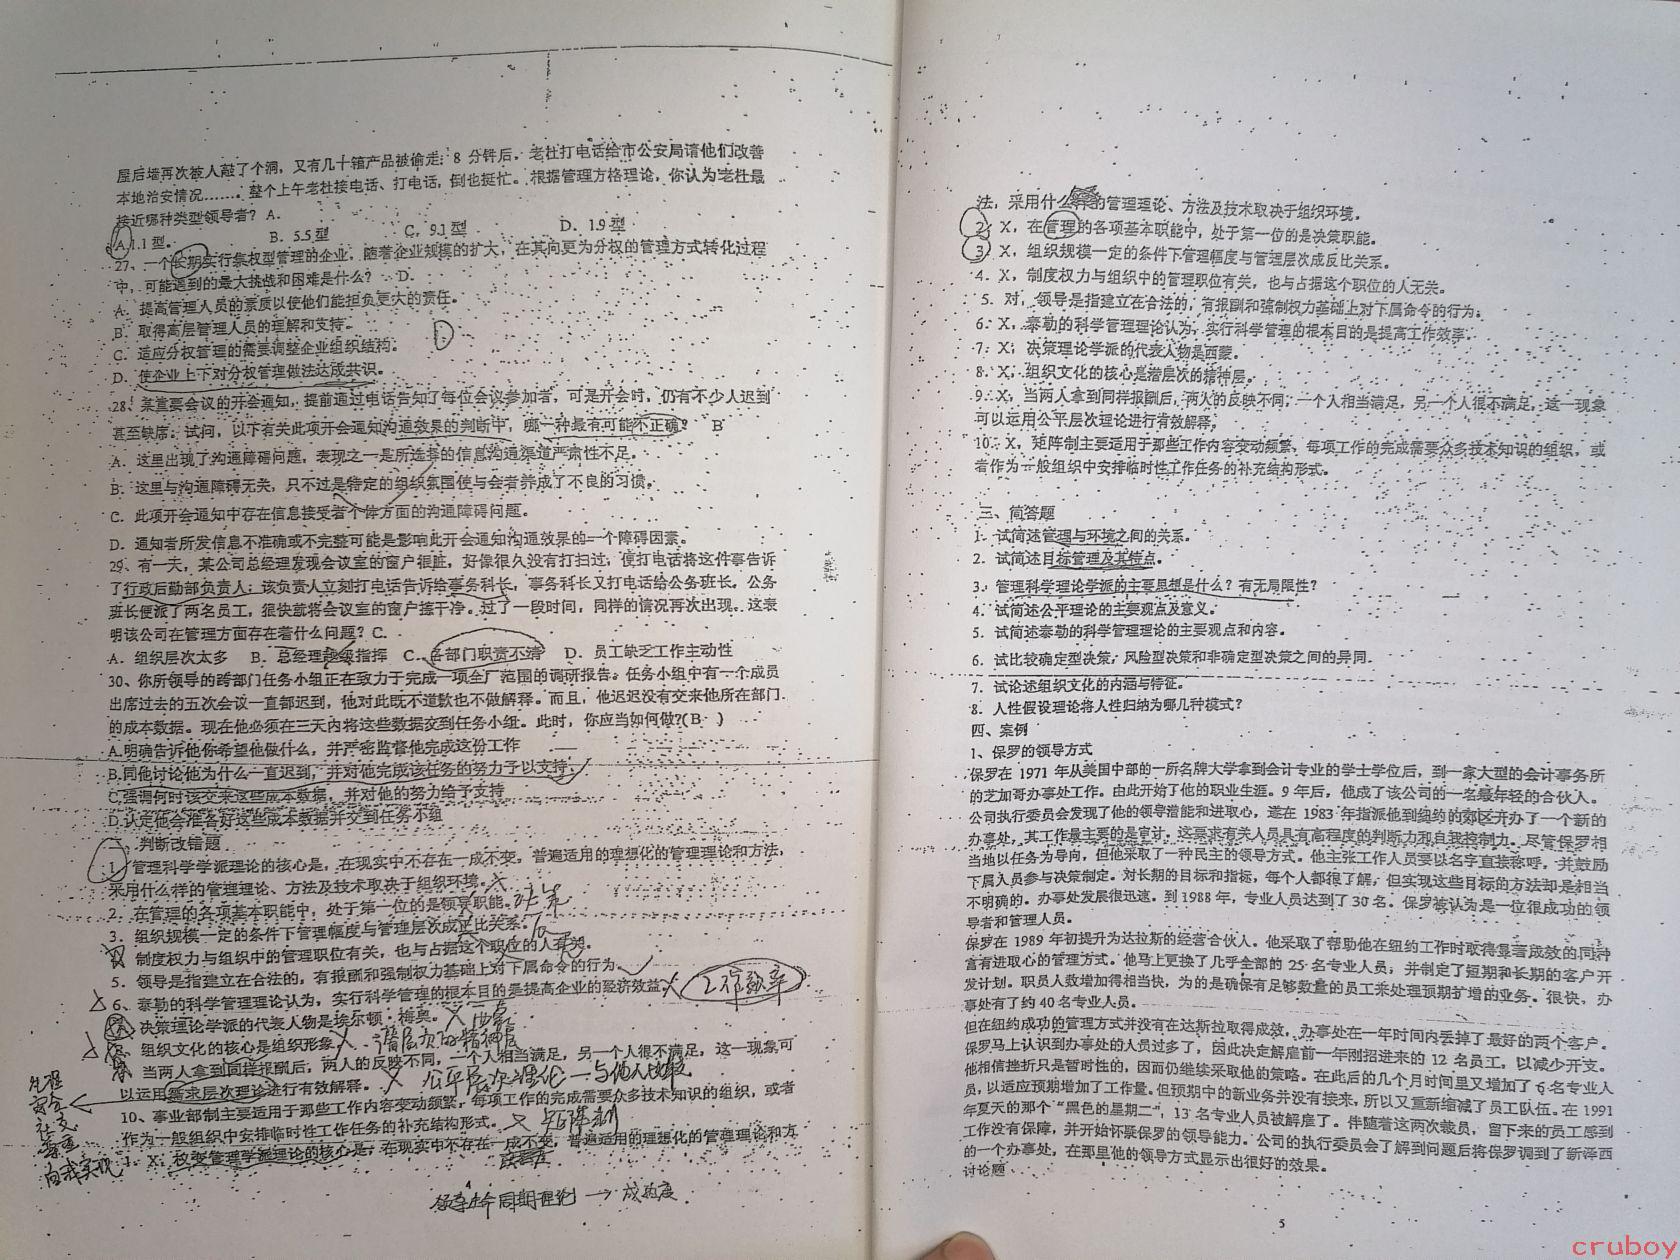 屋后墙再次被人敲了个洞，又有几十箱产品被偷走；8 分钟后，老杜打电话给市公安局请他们改善
本地治安情况……。整个上午老杜接电话、打电话，倒也挺忙。根据管理方格理论，你认为老杜最
接近哪种类型领导者？A.
A.1.1 型。 B．5.5 型 C．9.1 型 D．1.9 型
27、一个长期实行集权型管理的企业，随着企业规模的扩大，在其向更为分权的管理方式转化过程
中，可能遇到的最大挑战和困难是什么？ D.
A．提高管理人员的素质以使他们能担负更大的责任。
B．取得高层管理人员的理解和支持。
C．适应分权管理的需要调整企业组织结构。
D．使企业上下对分权管理做法达成共识。
D
28、某重要会议的开会通知，提前通过电话告知了每位会议参加者，可是开会时，仍有不少人迟到
甚至缺席。试问，以下有关此项开会通知沟通效果的判断中，哪一种最有可能不正确？ B
A．这里出现了沟通障碍问题，表现之一是所选择的信息沟通渠道严肃性不足。
B．这里与沟通障碍无关，只不过是特定的组织氛围使与会者养成了不良的习惯。
C．此项开会通知中存在信息接受者个体方面的沟通障碍问题。
D．通知者所发信息不准确或不完整可能是影响此开会通知沟通效果的一个障碍因素。
29、有一天，某公司总经理发现会议室的窗户很脏，好像很久没有打扫过，便打电话将这件事告诉
了行政后勤部负责人；该负责人立刻打电话告诉给事务科长，事务科长又打电话给公务班长，公务
班长便派了两名员工，很快就将会议室的窗户擦干净。过了一段时间，同样的情况再次出现。这表
明该公司在管理方面存在着什么问题？C.
A．组织层次太多 B．总经理越级指挥 C．各部门职责不清 D．员工缺乏工作主动性
30、你所领导的跨部门任务小组正在致力于完成一项全厂范围的调研报告。任务小组中有一个成员
出席过去的五次会议一直都迟到，他对此既不道歉也不做解释。而且，他迟迟没有交来他所在部门
的成本数据。现在他必须在三天内将这些数据交到任务小组。此时，你应当如何做?(B )
A.明确告诉他你希望他做什么，并严密监督他完成这份工作
B.同他讨论他为什么一直迟到，并对他完成该任务的努力予以支持
C.强调何时该交来这些成本数据，并对他的努力给予支持
D.认定他会准备好这些成本数据并交到任务小组
二、判断改错题
1、管理科学学派理论的核心是，在现实中不存在一成不变，普遍适用的理想化的管理理论和方法，
采用什么样的管理理论、方法及技术取决于组织环境。X
2．在管理的各项基本职能中，处于第一位的是领导职能。决策
3．组织规模一定的条件下管理幅度与管理层次成正比关系。反
制度权力与组织中的管理职位有关，也与占据这个职位的人有关。
5．领导是指建立在合法的，有报酬和强制权力基础上对下属命令的行为。✓
6、泰勒的科学管理理论认为，实行科学管理的根本目的是提高企业的经济效益。X 工作效率
决策理论学派的代表人物是埃尔顿·梅奥。X 西蒙
组织文化的核心是组织形象。X 潜层次的精神层
当两人拿到同样报酬后，两人的反映不同，一个人相当满足，另一个人很不满足，这一现象可
以运用需求层次理论进行有效解释。X 公平层次理论—与他人比较
生理
安全
社交
尊重
自我实现
10、事业部制主要适用于那些工作内容变动频繁，每项工作的完成需要众多技术知识的组织，或者
作为一般组织中安排临时性工作任务的补充结构形式。X 矩阵制
1．X，权变管理学派理论的核心是，在现实中不存在一成不变，普遍适用的理想化的管理理论和方
领导生命周期理论 → 成熟度
法，采用什么样的管理理论、方法及技术取决于组织环境。
2．X，在管理的各项基本职能中，处于第一位的是决策职能。
3．X，组织规模一定的条件下管理幅度与管理层次成反比关系。
4．X，制度权力与组织中的管理职位有关，也与占据这个职位的人无关。
5．对，领导是指建立在合法的，有报酬和强制权力基础上对下属命令的行为。
6．X，泰勒的科学管理理论认为，实行科学管理的根本目的是提高工作效率。
7．X，决策理论学派的代表人物是西蒙。
8．X，组织文化的核心是潜层次的精神层。
9．X，当两人拿到同样报酬后，两人的反映不同，一个人相当满足，另一个人很不满足，这一现象
可以运用公平层次理论进行有效解释。
10．X，矩阵制主要适用于那些工作内容变动频繁、每项工作的完成需要众多技术知识的组织，或
者作为一般组织中安排临时性工作任务的补充结构形式。
三、简答题
1．试简述管理与环境之间的关系。
2．试简述目标管理及其特点。
3．管理科学理论学派的主要思想是什么？有无局限性？
4．试简述公平理论的主要观点及意义。
5．试简述泰勒的科学管理理论的主要观点和内容。
6．试比较确定型决策，风险型决策和非确定型决策之间的异同.
7．试论述组织文化的内涵与特征。
8．人性假设理论将人性归纳为哪几种模式？
四、案例
1、保罗的领导方式
保罗在 1971 年从美国中部的一所名牌大学拿到会计专业的学士学位后，到一家大型的会计事务所
的芝加哥办事处工作。由此开始了他的职业生涯。9 年后，他成了该公司的一名最年轻的合伙人。
公司执行委员会发现了他的领导潜能和进取心，遂在 1983 年指派他到纽约的郊区开办了一个新的
办事处，其工作最主要的是审计，这要求有关人员具有高程度的判断力和自我控制力。尽管保罗相
当地以任务为导向，但他采取了一种民主的领导方式。他主张工作人员要以名字直接称呼，并鼓励
下属人员参与决策制定。对长期的目标和指标，每个人都很了解，但实现这些目标的方法却是相当
不明确的。办事处发展很迅速。到 1988 年，专业人员达到了 30 名。保罗被认为是一位很成功的领
导者和管理人员。
保罗在 1989 年初提升为达拉斯的经营合伙人。他采取了帮助他在纽约工作时取得显著成效的同种
富有进取心的管理方式。他马上更换了几乎全部的 25 名专业人员，并制定了短期和长期的客户开
发计划。职员人数增加得相当快，为的是确保有足够数量的员工来处理预期扩增的业务。很快，办
事处有了约 40 名专业人员。
但在纽约成功的管理方式并没有在达斯拉取得成效。办事处在一年时间内丢掉了最好的两个客户。
保罗马上认识到办事处的人员过多了，因此决定解雇前一年刚招进来的 12 名员工，以减少开支。
他相信挫折只是暂时性的，因而仍继续采取他的策略。在此后的几个月时间里又增加了 6 名专业人
员，以适应预期增加了工作量。但预期中的新业务并没有接来，所以又重新缩减了员工队伍。在 1991
年夏天的那个“黑色的星期二”，13 名专业人员被解雇了。伴随着这两次裁员，留下来的员工感到
工作没有保障，并开始怀疑保罗的领导能力。公司的执行委员会了解到问题后将保罗调到了新泽西
的一个办事处，在那里他的领导方式显示出很好的效果。
讨论题
5
cruboy